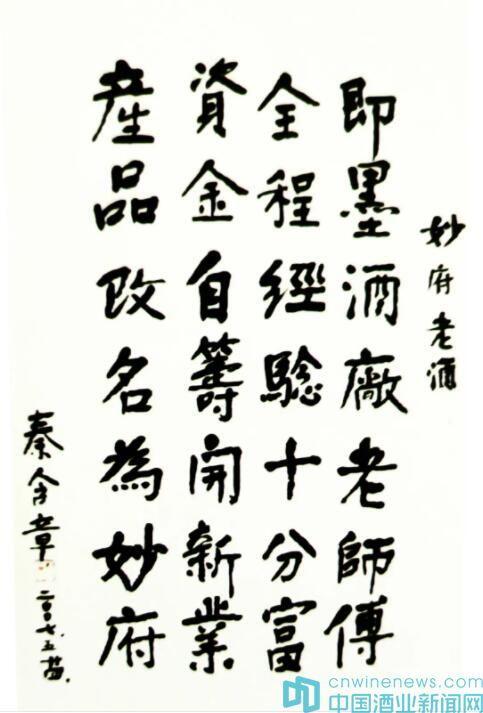 妙府老酒
即墨酒廠老師傅
全程經騐十分富
資金自籌開新業
産品改名為妙府
秦含章
二〇〇七.五.
cnwinenews.com
中国酒业新闻网